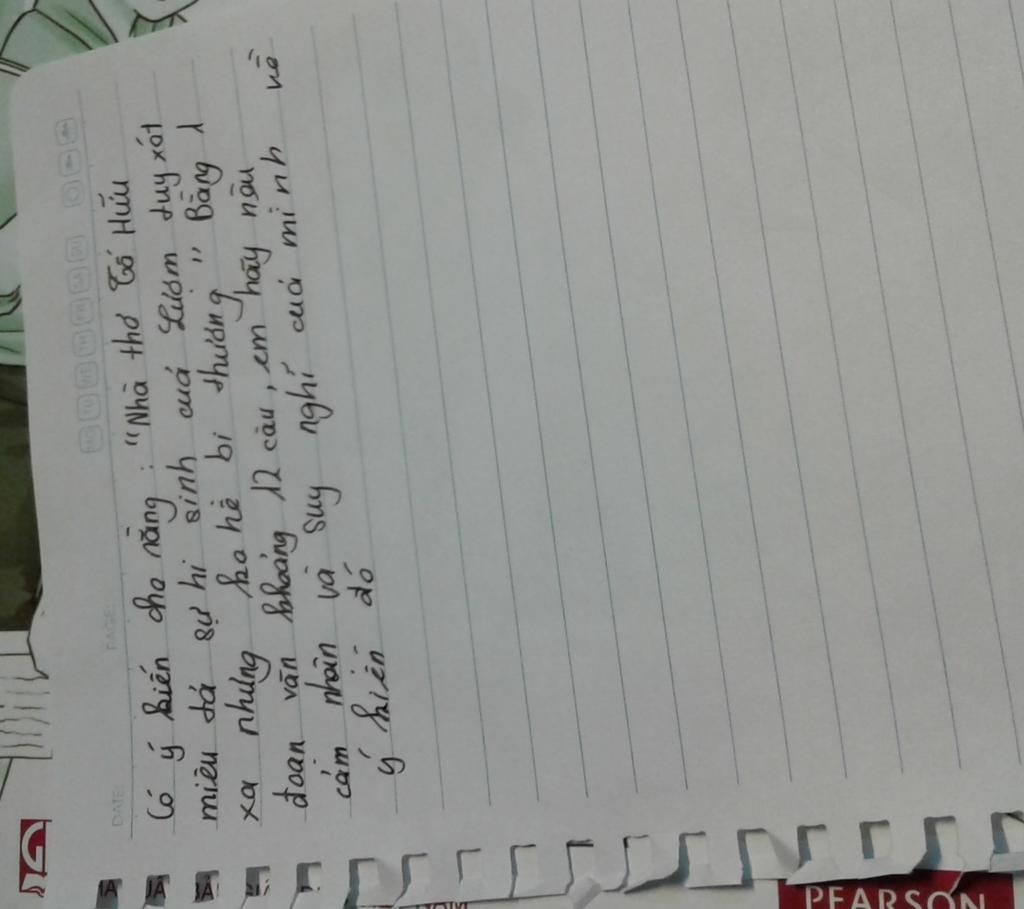 Có ý kiến cho rằng: "Nhà thơ Tố Hữu
miêu tả sự hi sinh của Lượm tuy xót
xa nhưng ko hề bi thương" Bằng 1
đoạn văn khoảng 12 câu, em hãy nêu
cảm nhân và suy nghĩ của mình về
ý kiến đó
DATE:
PAGE:
PEARSON